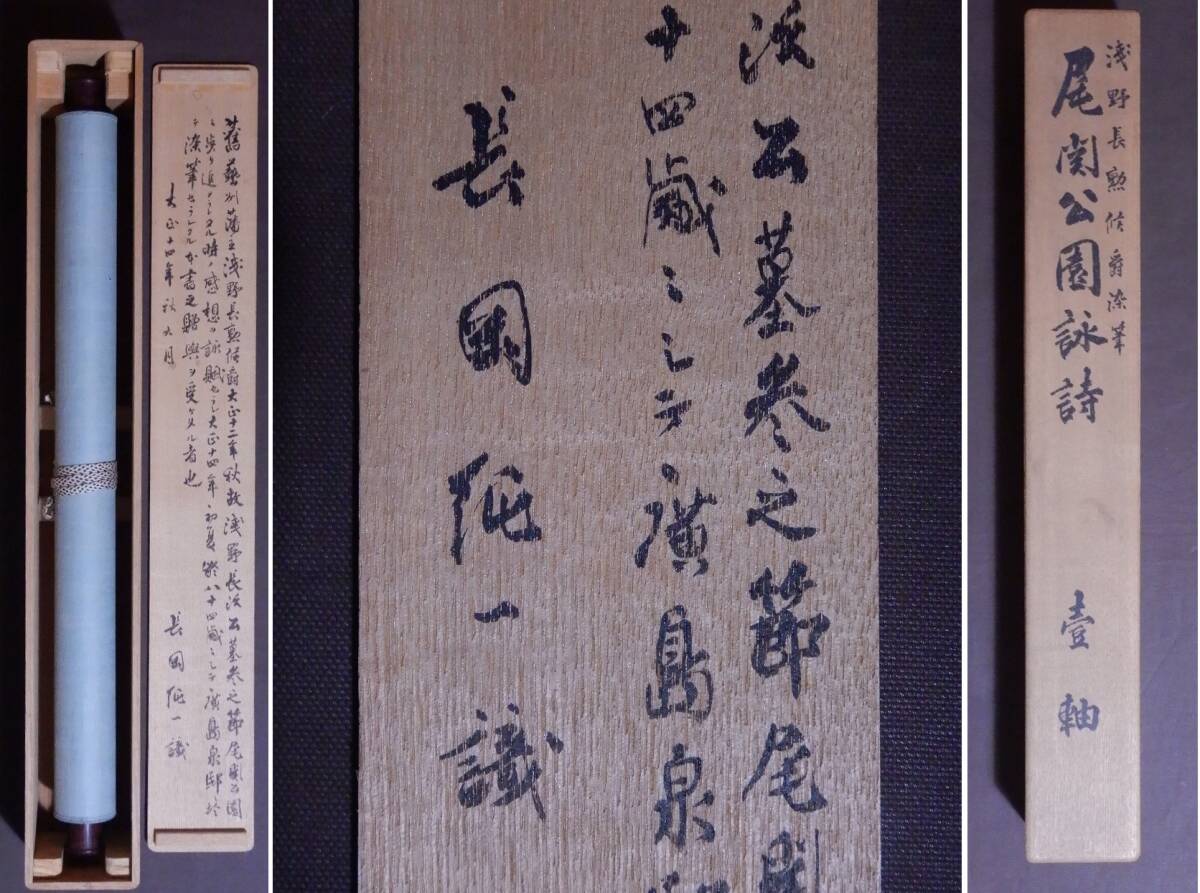 舊藝州藩主浅野長勲侯爵大正十二年秋故浅野長治公墓参之節尾関公園
ニ登リ追 タル時ノ感想ヲ詠賦セラレ大正十四年ノ初夏齢八十四歳ニシテ廣島泉邸ニ於
テ染筆セラレタル 書 贈與ヲ受ケタル者也
大正十四年秋九月
長岡 一識
公墓参之節尾関
十四歳ニシテ廣島泉邸
長岡 一識
浅野長勲侯爵染筆
尾関公園詠詩
壹軸